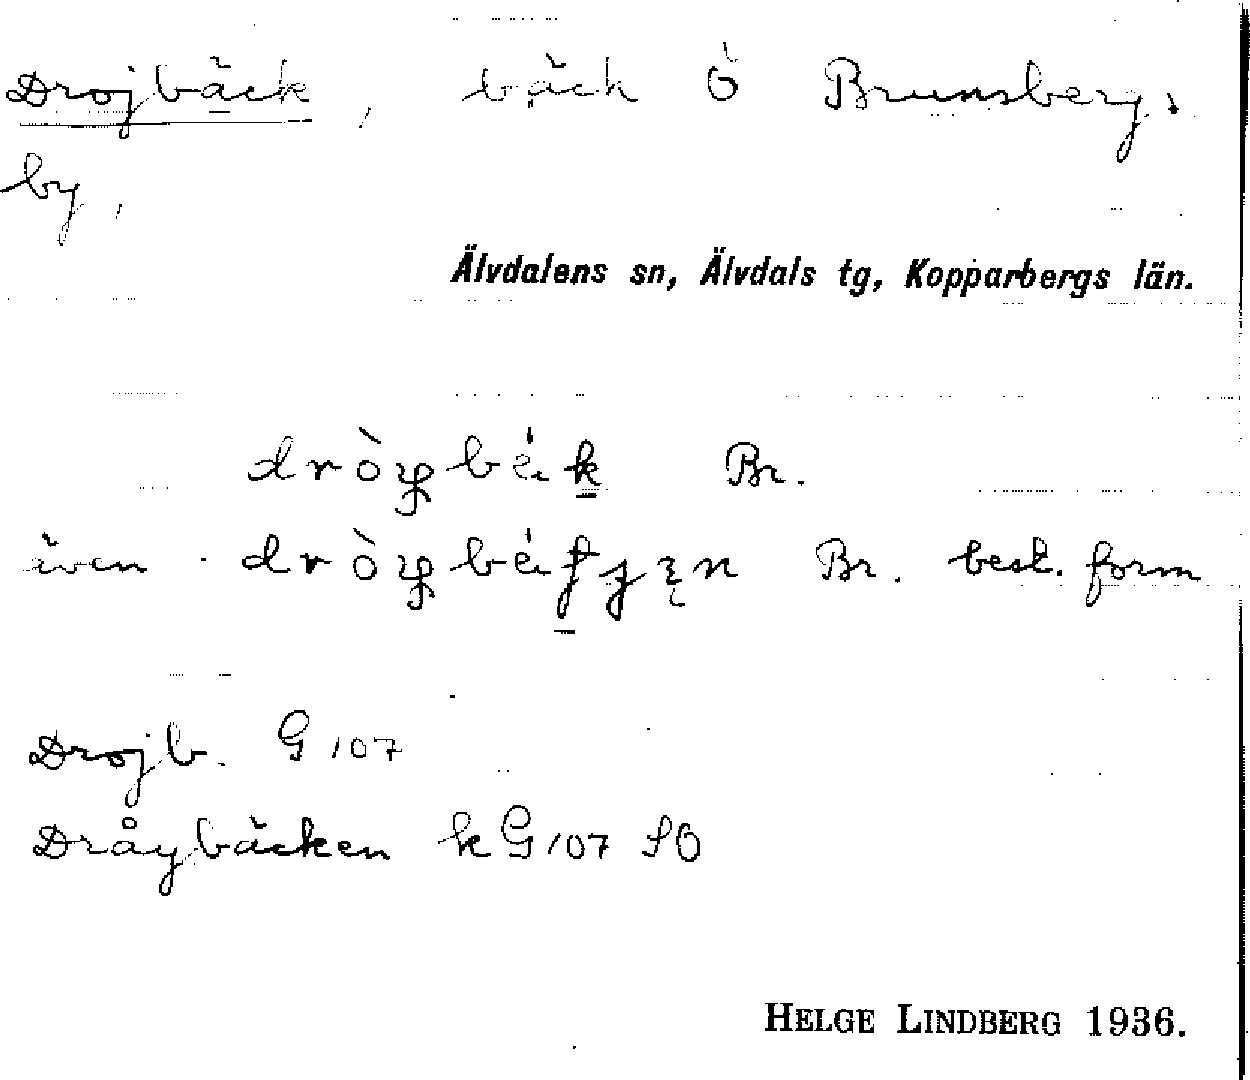 Drojbäck, bäck Ö Brunsberg,
by,
Älvdalens sn, Älvdals tg, Kopparbergs län.
Br.
även Br. best. form
Drojb. G 107
Dråybäcken kG 107 SO
HELGE LINDBERG 1936.